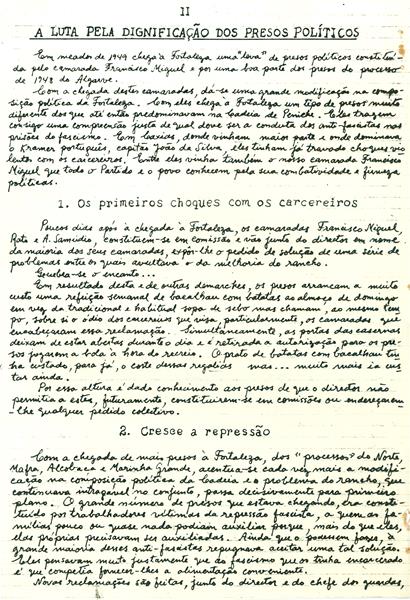 II
A LUTA PELA DIGNIFICAÇÃO DOS PRESOS POLÍTICOS
Em meados de 1949 chega à Fortaleza uma "leva" de presos políticos constituí-
da pelo camarada Francisco Miguel e por uma boa parte dos presos do processo
de 1948 do Algarve.
Com a chegada destes camaradas, dá-se uma grande modificação na compo-
sição política da Fortaleza. Com eles chega à Fortaleza um tipo de presos muito
diferente dos que até então predominavam na Cadeia de Peniche. Eles trazem
consigo uma compreensão justa de qual deve ser a conduta dos anti-fascistas nas
prisões do fascismo. Em Caxias, donde vinham maior parte e onde dominava
o Kramer português, capitão João da Silva, eles tinham já travado choques vio-
lentos com os carcereiros. Entre eles vinha também o nosso camarada Francisco
Miguel que todo o Partido e o povo conhecem pela sua combatividade e firmeza
políticas.
1. Os primeiros choques com os carcereiros
Poucos dias após a chegada à Fortaleza, os camaradas Francisco Miguel,
Rato e A. Samúdio, constituem-se em comissão e vão junto do director em nome
da maioria dos seus camaradas, expôr-lhe o pedido de solução de uma série de
problemas entre os quais avultava o da melhoria do rancho.
Quebra-se o encanto...
Em resultado desta e de outras demarches, os presos arrancam a muito
custo uma refeição semanal de bacalhau com batatas ao almoço de domingo
em vez da tradicional e habitual sopa de sebo mas chamam, ao mesmo tem-
po, sobre si o ódio dos carcereiros que visa, particularmente, os camaradas que
encabeçaram essa reclamação. Simultaneamente, as portas das casernas
deixam de estar abertas durante o dia e é retirada a autorização para os pre-
sos jogarem a bola à hora do recreio. O prato de batatas com bacalhau ti-
ha custado, para já, o corte dessas regalias mas... muito mais ia cus-
tar ainda.
Por essa altura é dado conhecimento aos presos de que o director não
permitia a estes, futuramente, constituirem-se em comissões ou endereçarem-
-lhe qualquer pedido colectivo.
2. Cresce a repressão
Com a chegada de mais presos à Fortaleza, dos "processos" do Norte,
Mafra, Alcobaça e Marinha Grande, acentua-se cada vez mais a modifi-
cação na composição política da Cadeia e o problema do rancho, que
continuava intragável no conjunto, passa decisivamente para primeiro
plano. O grande número de presos que estava chegando, era consti-
tuído por trabalhadores vítimas da repressão fascista, a quem as fa-
mílias pouco ou quase nada podiam auxiliar porque, mais do que eles,
elas próprias precisavam ser auxiliadas. Ainda que o pudessem fazer, à
grande maioria desses anti-fascistas repugnava aceitar uma tal solução.
Eles pensavam muito justamente que ao fascismo que os tinha encarcerado
é que competia fornecer-lhes a alimentação conveniente.
Novas reclamações são feitas, junto do director e do chefe dos guardas,